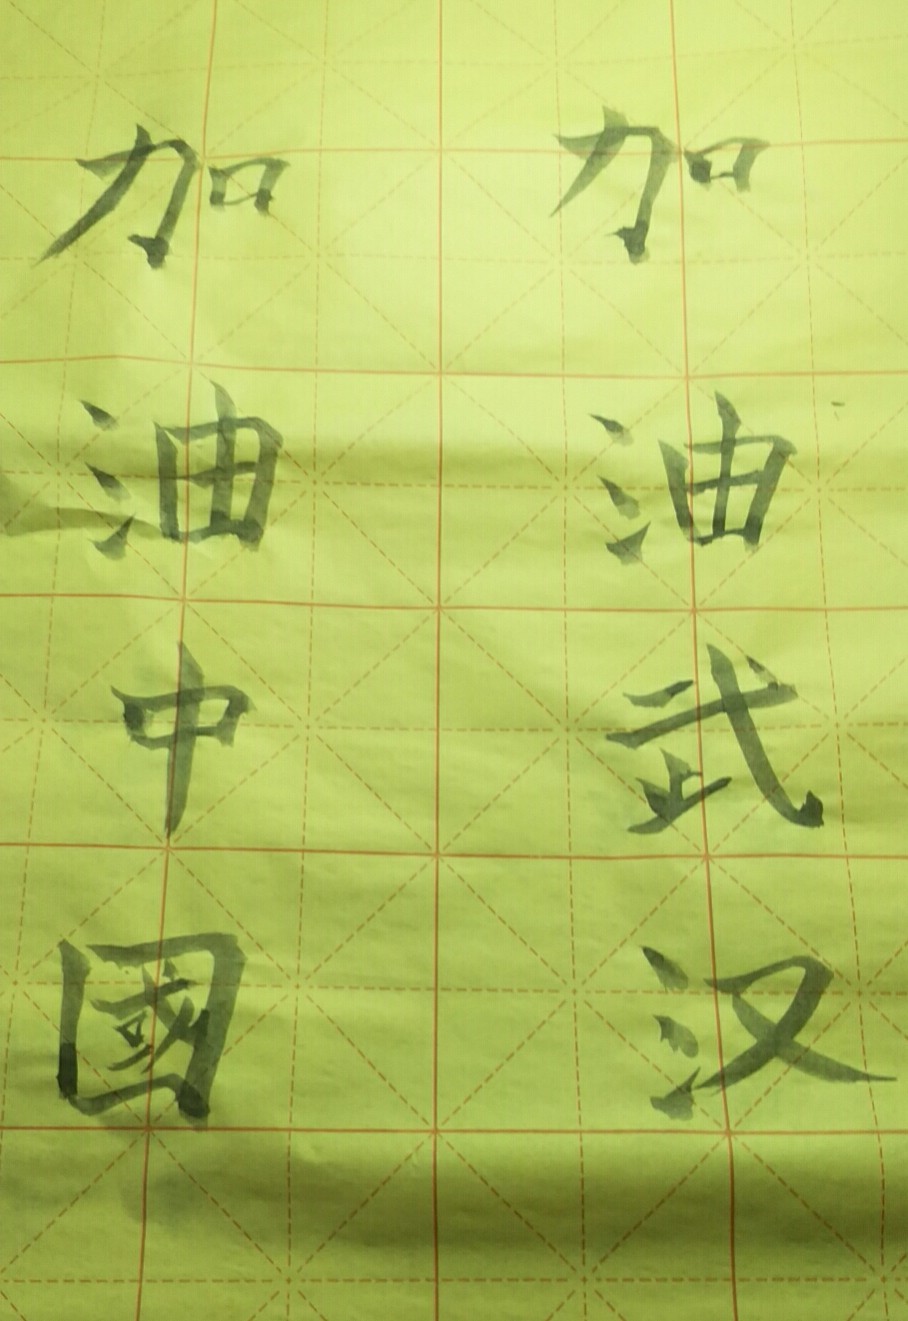 加油武汉
加油中國